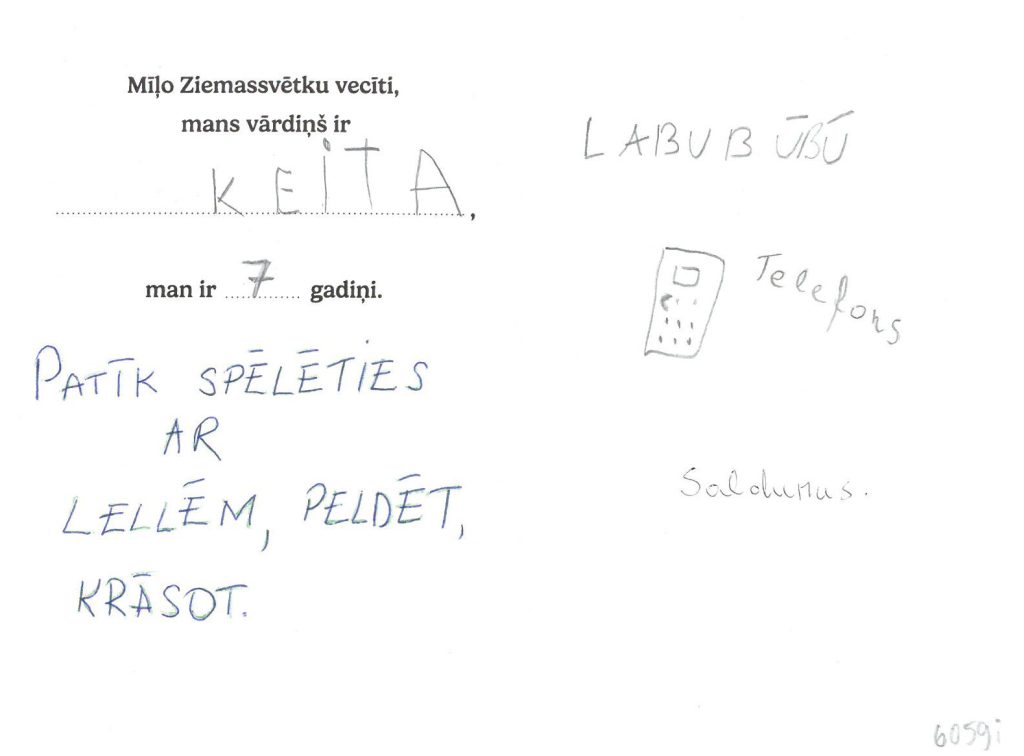 Mīļo Ziemassvētku vecīti,
mans vārdiņš ir
KEiTA,
man ir 7 gadiņi.
PATĪK SPĒLĒTIES
AR
LELLĒM, PELDĒT,
KRĀSOT.
LABUBŪBŪ
Telefons
Saldumus.
6059i